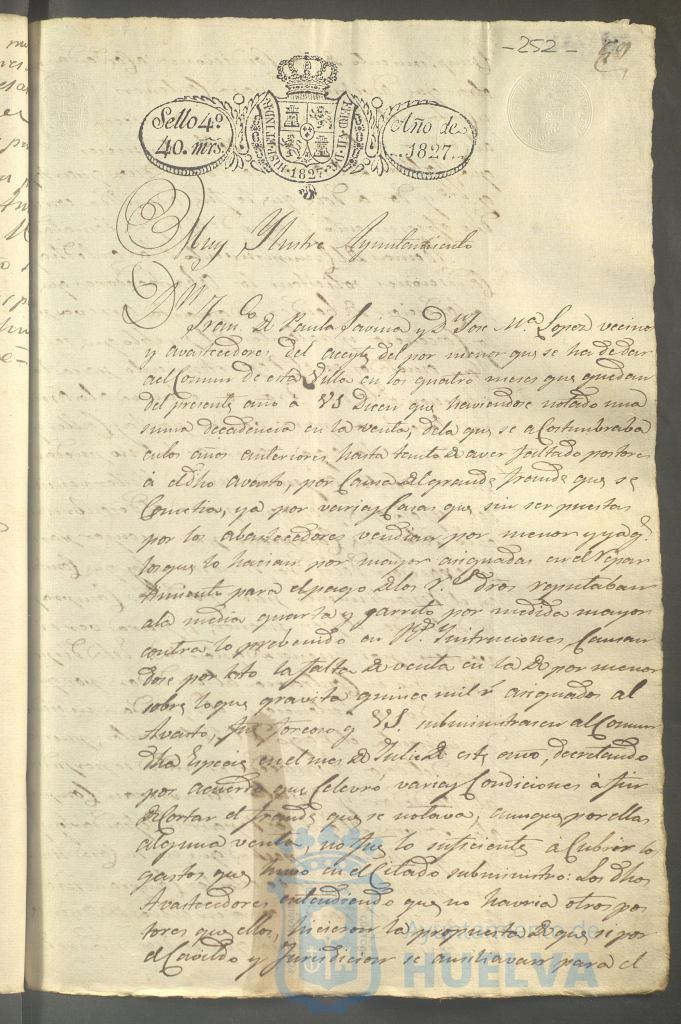 -252- 59
Sello 4º
40. mrs.
HISP. ET IND. R.
FERD. VII D. G.
·1827·
Año de
1827.
Muy Ylustre Ayuntamiento
Dn Franco. de Paula Savina y Dn Jose Ma. Lopez vecinos
y avastecedores del aceyte del por menor que se ha de dar
al Comun de esta Villa en los quatro meses que quedan
del presente año à VS Dicen que haviendose notado una
suma decadencia en la venta, dela que se acostumbraba
enlos años anteriores hasta tanto de aver faltado postores
à el dho avasto, por Causa del grande fraude que se
Cometia, ya por varias Casas que sin ser puestas
por los abastecedores vendian por menor y ya q.
los que lo hacian por mayor asignadas en el Repar
timiento para el pago delos Rs. dros reputaban
ala media quarta y jarrito por medida mayor
contra lo prebenido en Rs. Instruciones, Causan
dose por esto la falta de venta en la de por menor
sobre lo que gravita quince mil rs asignados al
Avasto, fue forcoso q VS. subministrasen al Comun
dha Especie en el mes de Julio de este año, decretando
por acuerdo que Celevró varias Condiciones à fin
de Cortar el fraude que se notava, aunque por ellas
alguna venta, no fue lo suficiente à Cubrir lo
gastos que huvo en el Citado subministro: Los dhos
Avastecedores entendiendo que no havria otros pos
tores que ellos, hicieron la propuesta de que si por
el Cavildo y Jurisdicion se auxiliavan para el
Ayuntamiento de
HUELVA